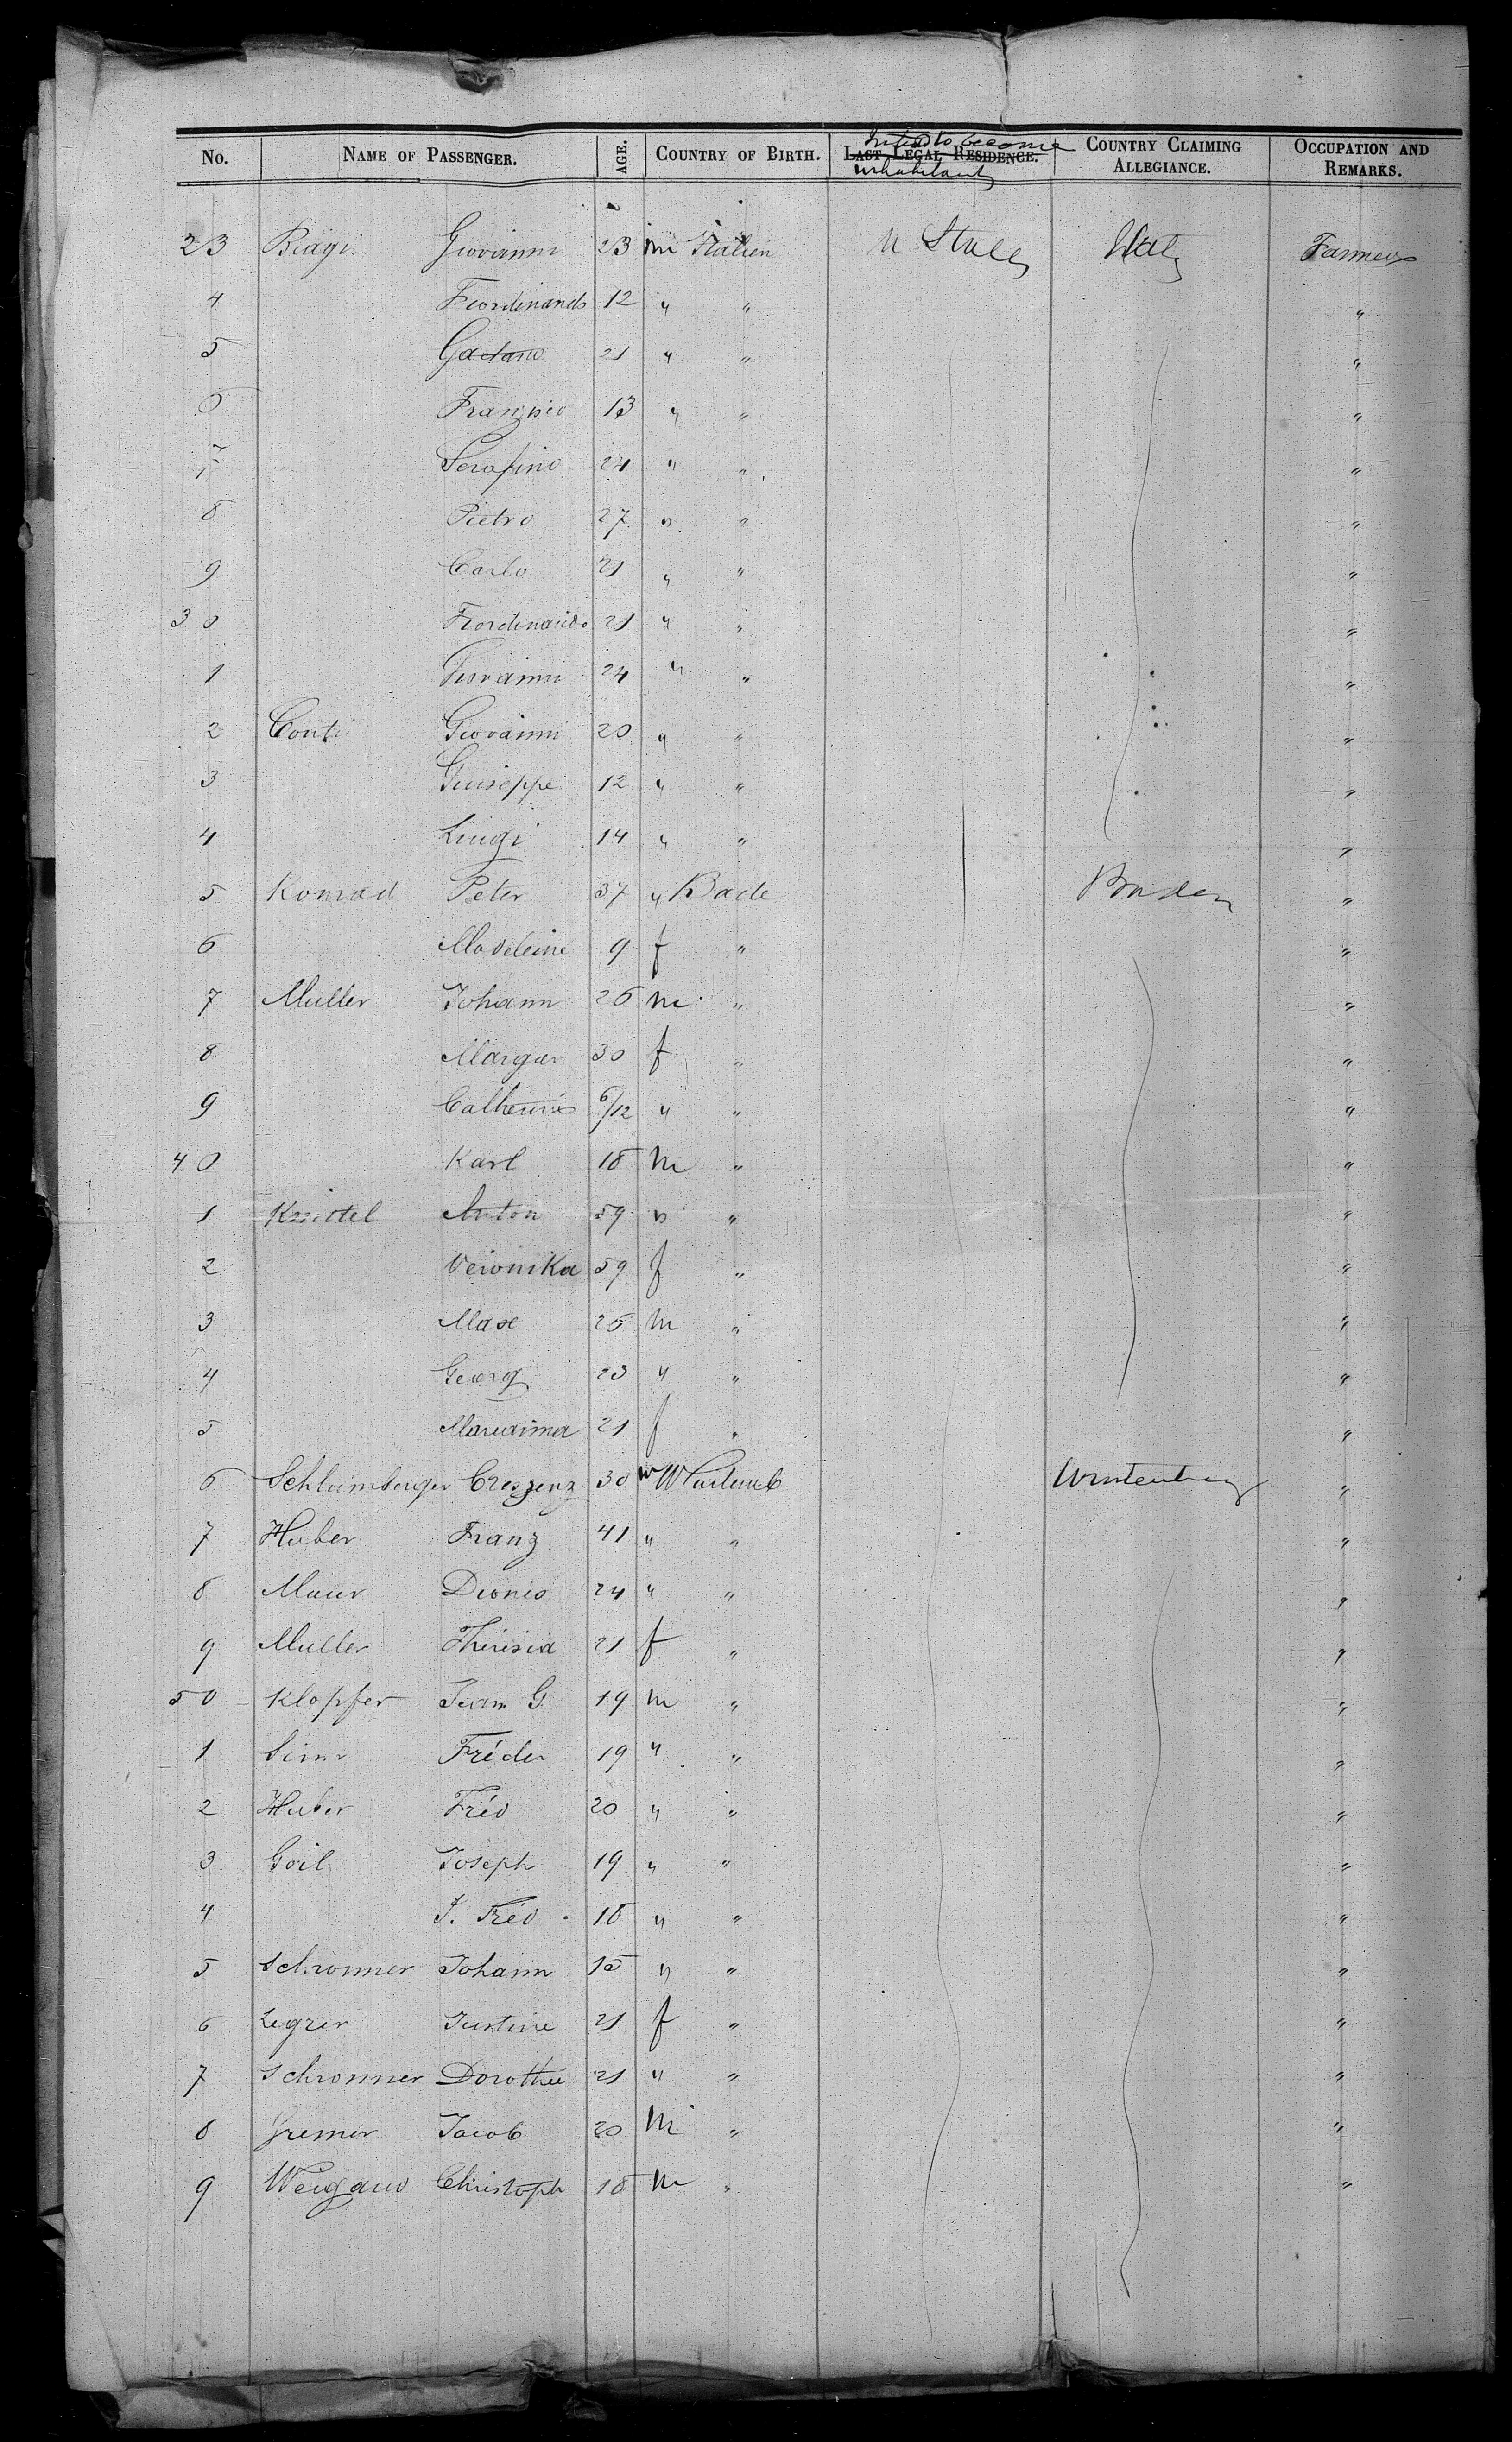 No. NAME OF PASSENGER. AGE. COUNTRY OF BIRTH. LAST LEGAL RESIDENCE. Intend to become inhabitants COUNTRY CLAIMING ALLEGIANCE. OCCUPATION AND REMARKS.
23 Biagi Giovanni 23 m Italien U. States Italy Farmers
4 Ferdinando 12 " " "
5 Gaetano 21 " " "
6 13 " " "
7 Serafino 24 " " "
8 Pietro 27 " " "
9 Carlo 21 " " "
30 21 " " "
1 Giovanni 24 " " "
2 Conti Giovanni 20 " " "
3 Guiseppe 12 " " "
4 Luigi 14 " " "
5 Konrad Peter 37 " Bade Baden "
6 Madeleine 9 f " "
7 Muller Johann 26 m " "
8 Margar 30 f " "
9 Catherine 6/12 " " "
40 Karl 18 m " "
1 Knittel Anton 59 " " "
2 Veronika 59 f " "
3 Max 25 m " "
4 Georg 23 " " "
5 21 f " "
6 Schlumberger Creszenz 30 m Wurtemb Wurtemberg "
7 Huber Franz 41 " " "
8 Maur Dionis 24 " " "
9 Muller Thérésia 21 f " "
50 Klopfer Jean G. 19 m " "
1 Fréder 19 " " "
2 Huber Fréd 20 " " "
3 Goil Joseph 19 " " "
4 J. Fréd. 18 " " "
5 Schronner Johann 15 " " "
6 Legrer Justine 21 f " "
7 Schronner Dorothée 21 " " "
8 Gremer Jacob 20 m " "
9 Weigand Christoph 18 m " "